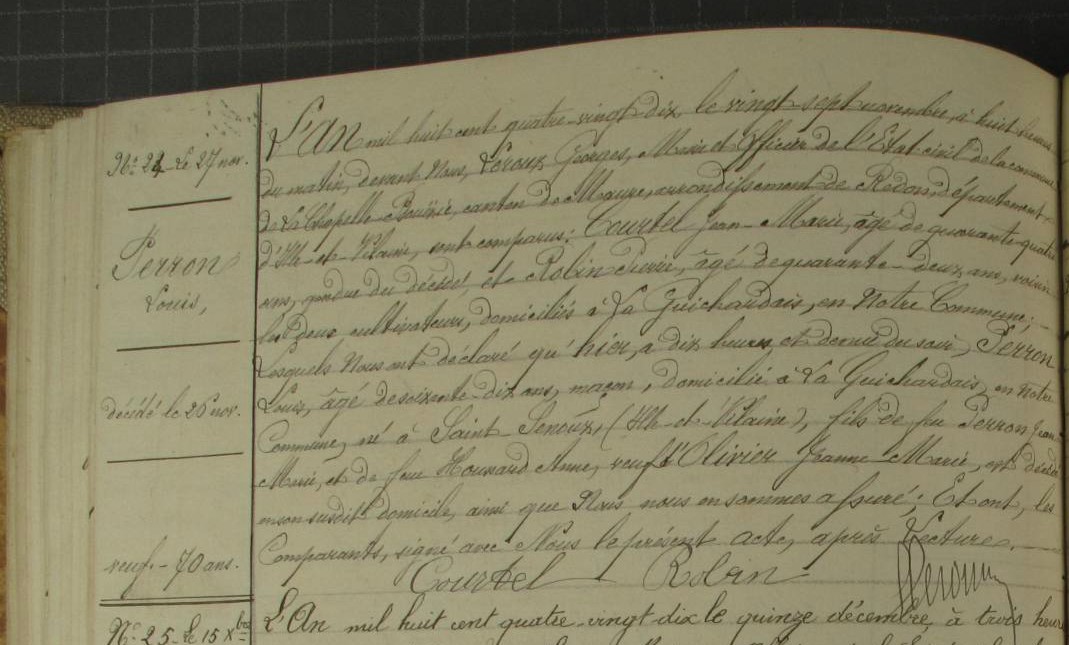 N° 24 - Le 27 nov.
Perron
Louis,
décédé le 26 nov.
veuf. - 70 ans.
L'An mil huit cent quatre-vingt-dix, le vingt-sept novembre, à huit heures
du matin, devant Nous, Leroux Georges, Maire et Officier de l'Etat-civil de la commune
de La Chapelle-Bouëxic, canton de Maure, arrondissement de Redon, département
d'Ille-et-Vilaine, sont comparus: Courtel Jean-Marie, âgé de quarante-quatre
ans, gendre du décédé, et Robin Pierre, âgé de quarante-deux ans, voisin
les deux cultivateurs, domiciliés à La Guichardais, en Notre Commune;
Lesquels Nous ont déclaré qu'hier, à dix heures et demie du soir, Perron
Louis, âgé de soixante-dix ans, maçon, domicilié à La Guichardais, en Notre
Commune, né à Saint Senoux, (Ille-et-Vilaine), fils de feu Perron Jean-
Marie, et de feue Houssard Anne, veuf d'Olivier Jeanne Marie, est décédé
en son susdit domicile, ainsi que Nous nous en sommes assuré; Et ont, les
Comparants, signé avec Nous le présent acte, après Lecture.
Courtel Robin Leroux
N° 25 - Le 15 Xbre
L'An mil huit cent quatre-vingt-dix le quinze décembre, à trois heur